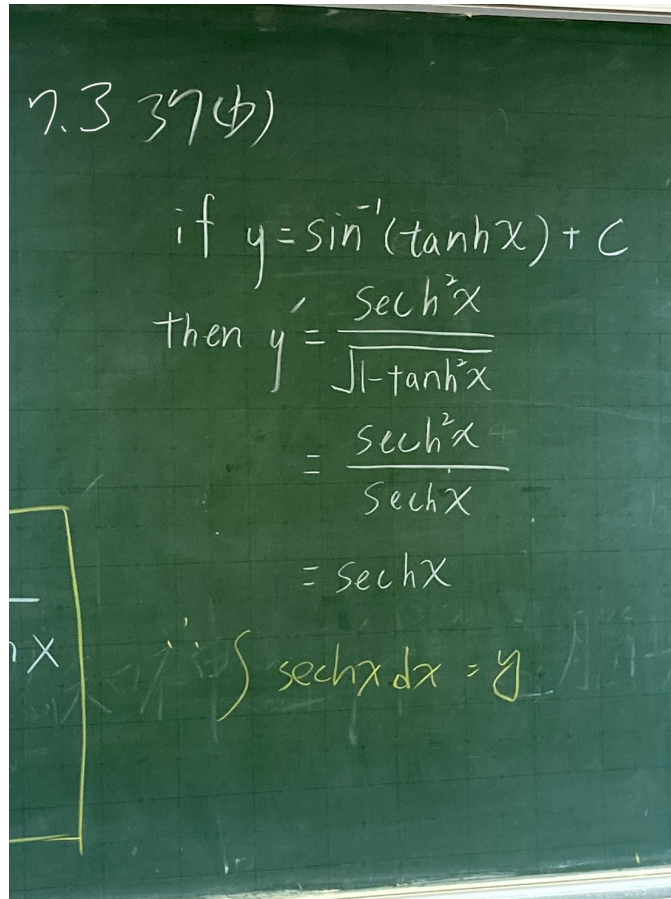 7.3 37(b)
if y = sin⁻¹(tanhx) + C
then y' = sech²x / √(1-tanh²x)
= sech²x / sechx
= sechx
∴ ∫ sechx dx = y
x